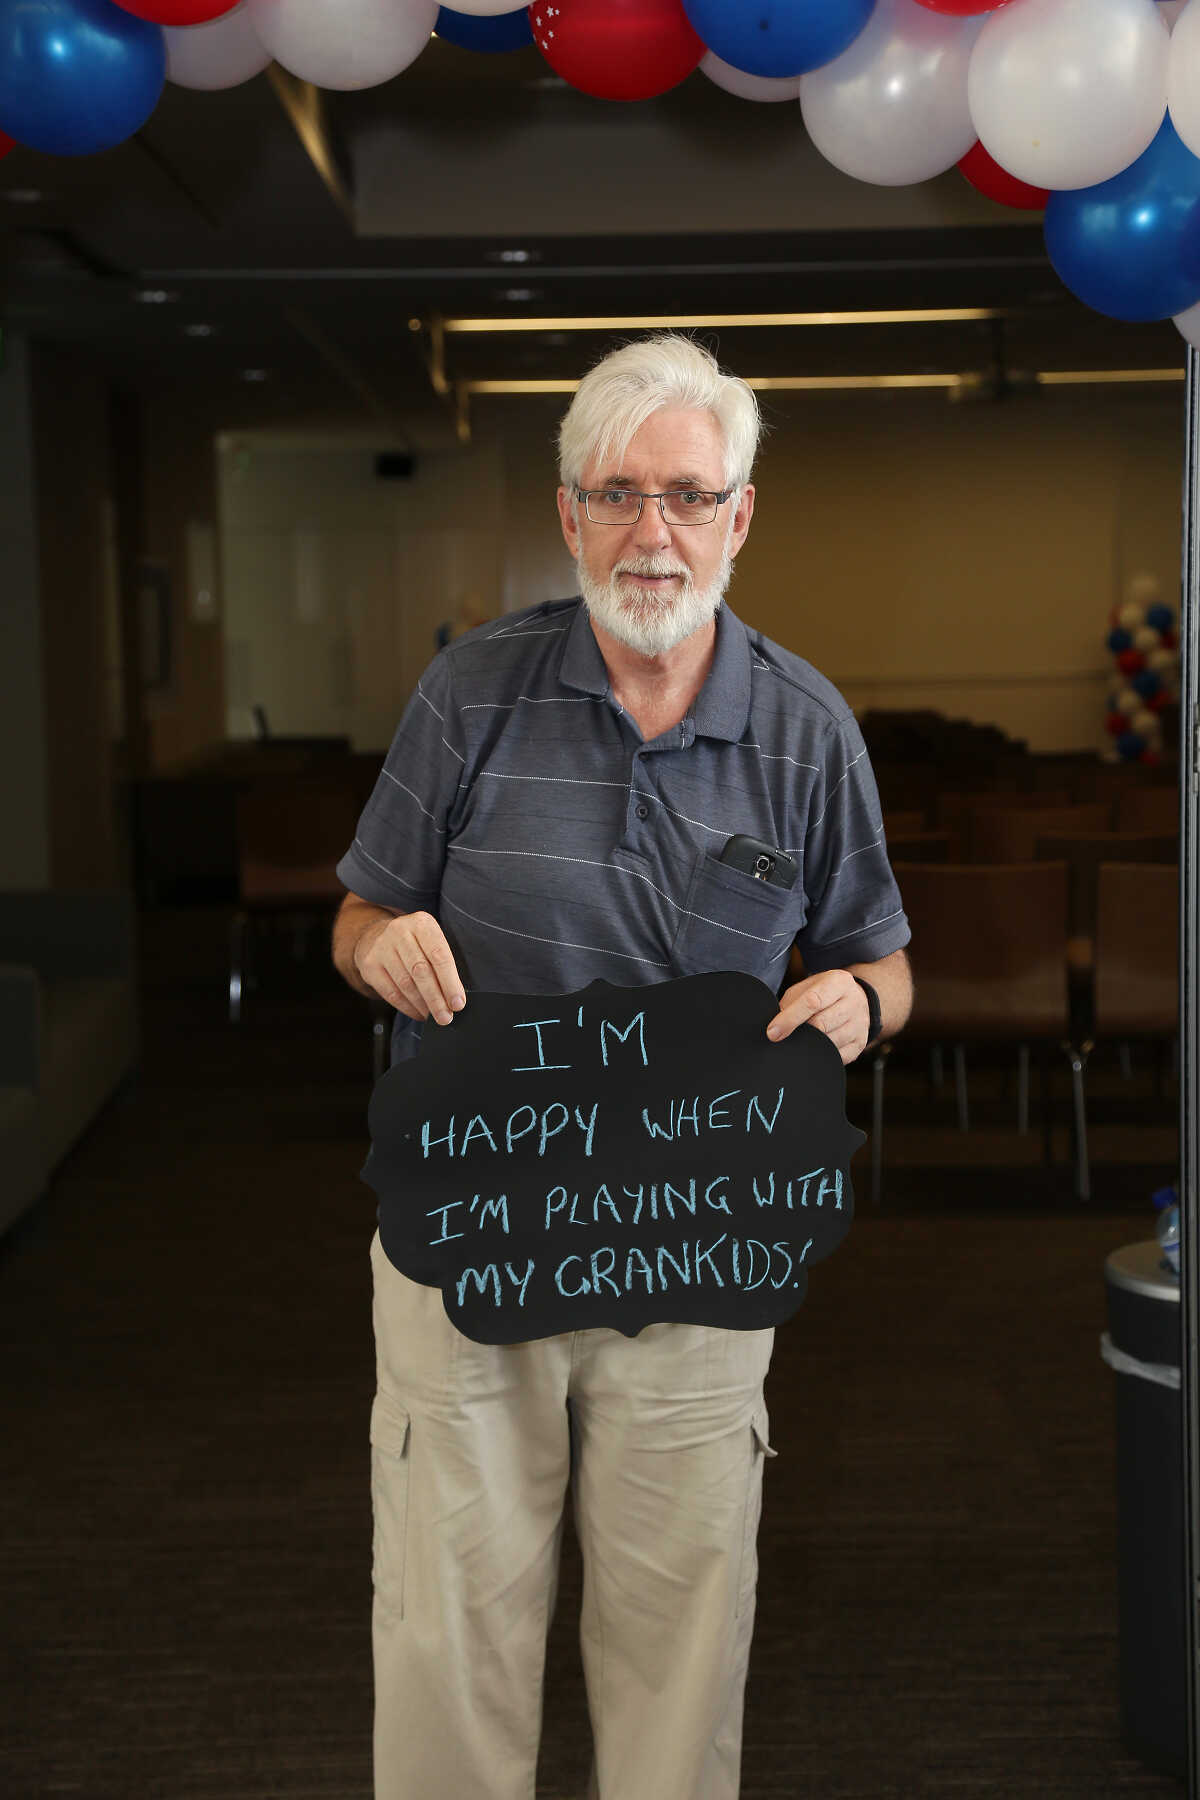 I'M
HAPPY WHEN
I'M PLAYING WITH
MY GRANKIDS!